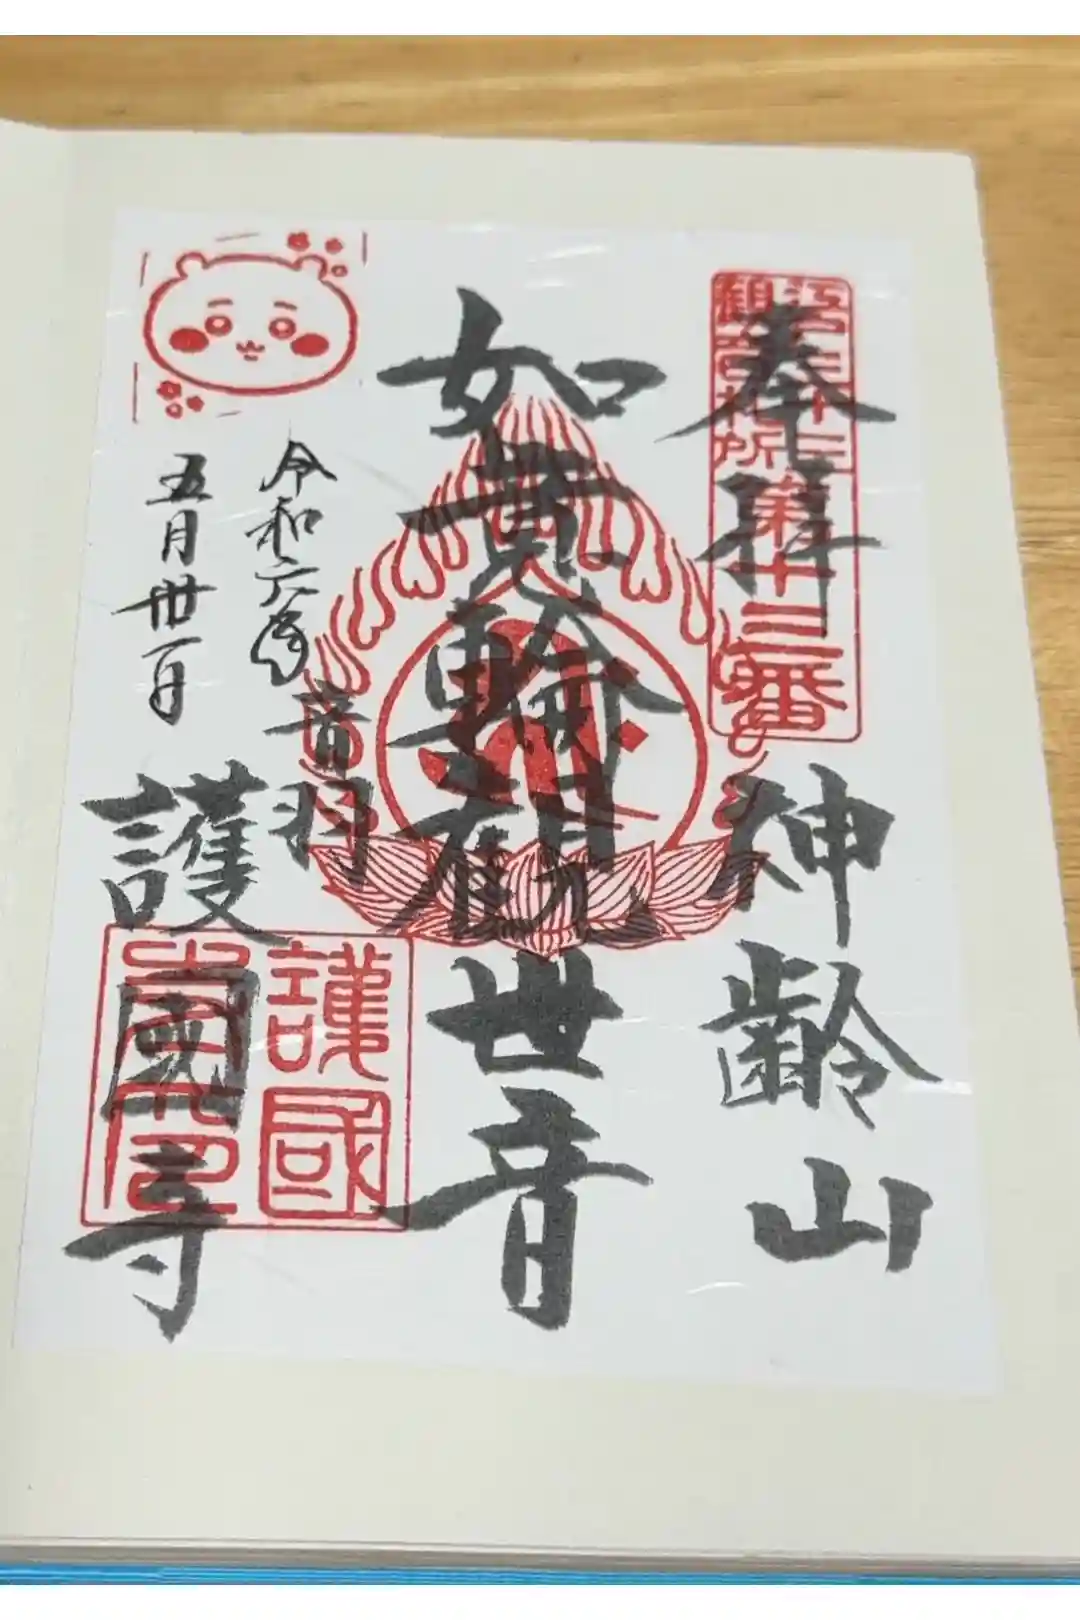 奉拝
江戸三十三
観音札所
第十三番
神齢山
如意輪観世音
音羽
護國寺
護國
寺印
令和六年
五月卅一日